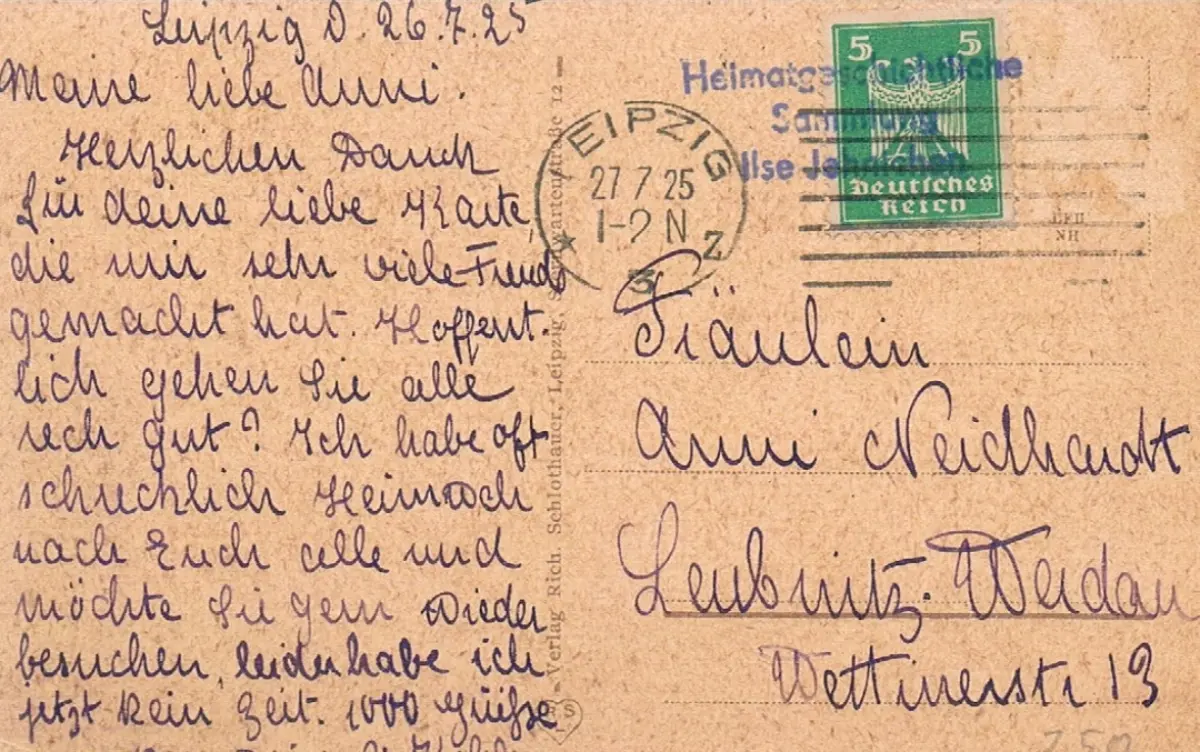 Leipzig d. 26.7.25
Meine liebe Anni.
Herzlichen Danck
für deine liebe Karte
die mir sehr viele Freude
gemacht hat. Hoffent-
lich gehen Sie alle
rech gut? Ich habe oft
schrecklich Heimweh
nach Euch alle und
möchte Sie gern wieder
besuchen, leider habe ich
jetzt kein Zeit. 1000 Grüße
Verlag Rich. Schlothauer, Leipzig, 12
LEIPZIG
27 7 25
1-2 N
2
3
Heimatgeschichtliche
Sammlung
Ilse
5 5
Deutsches
Reich
Fräulein
Anni Neidhardt
Leubnitz-Werdau
Wettinerstr 13